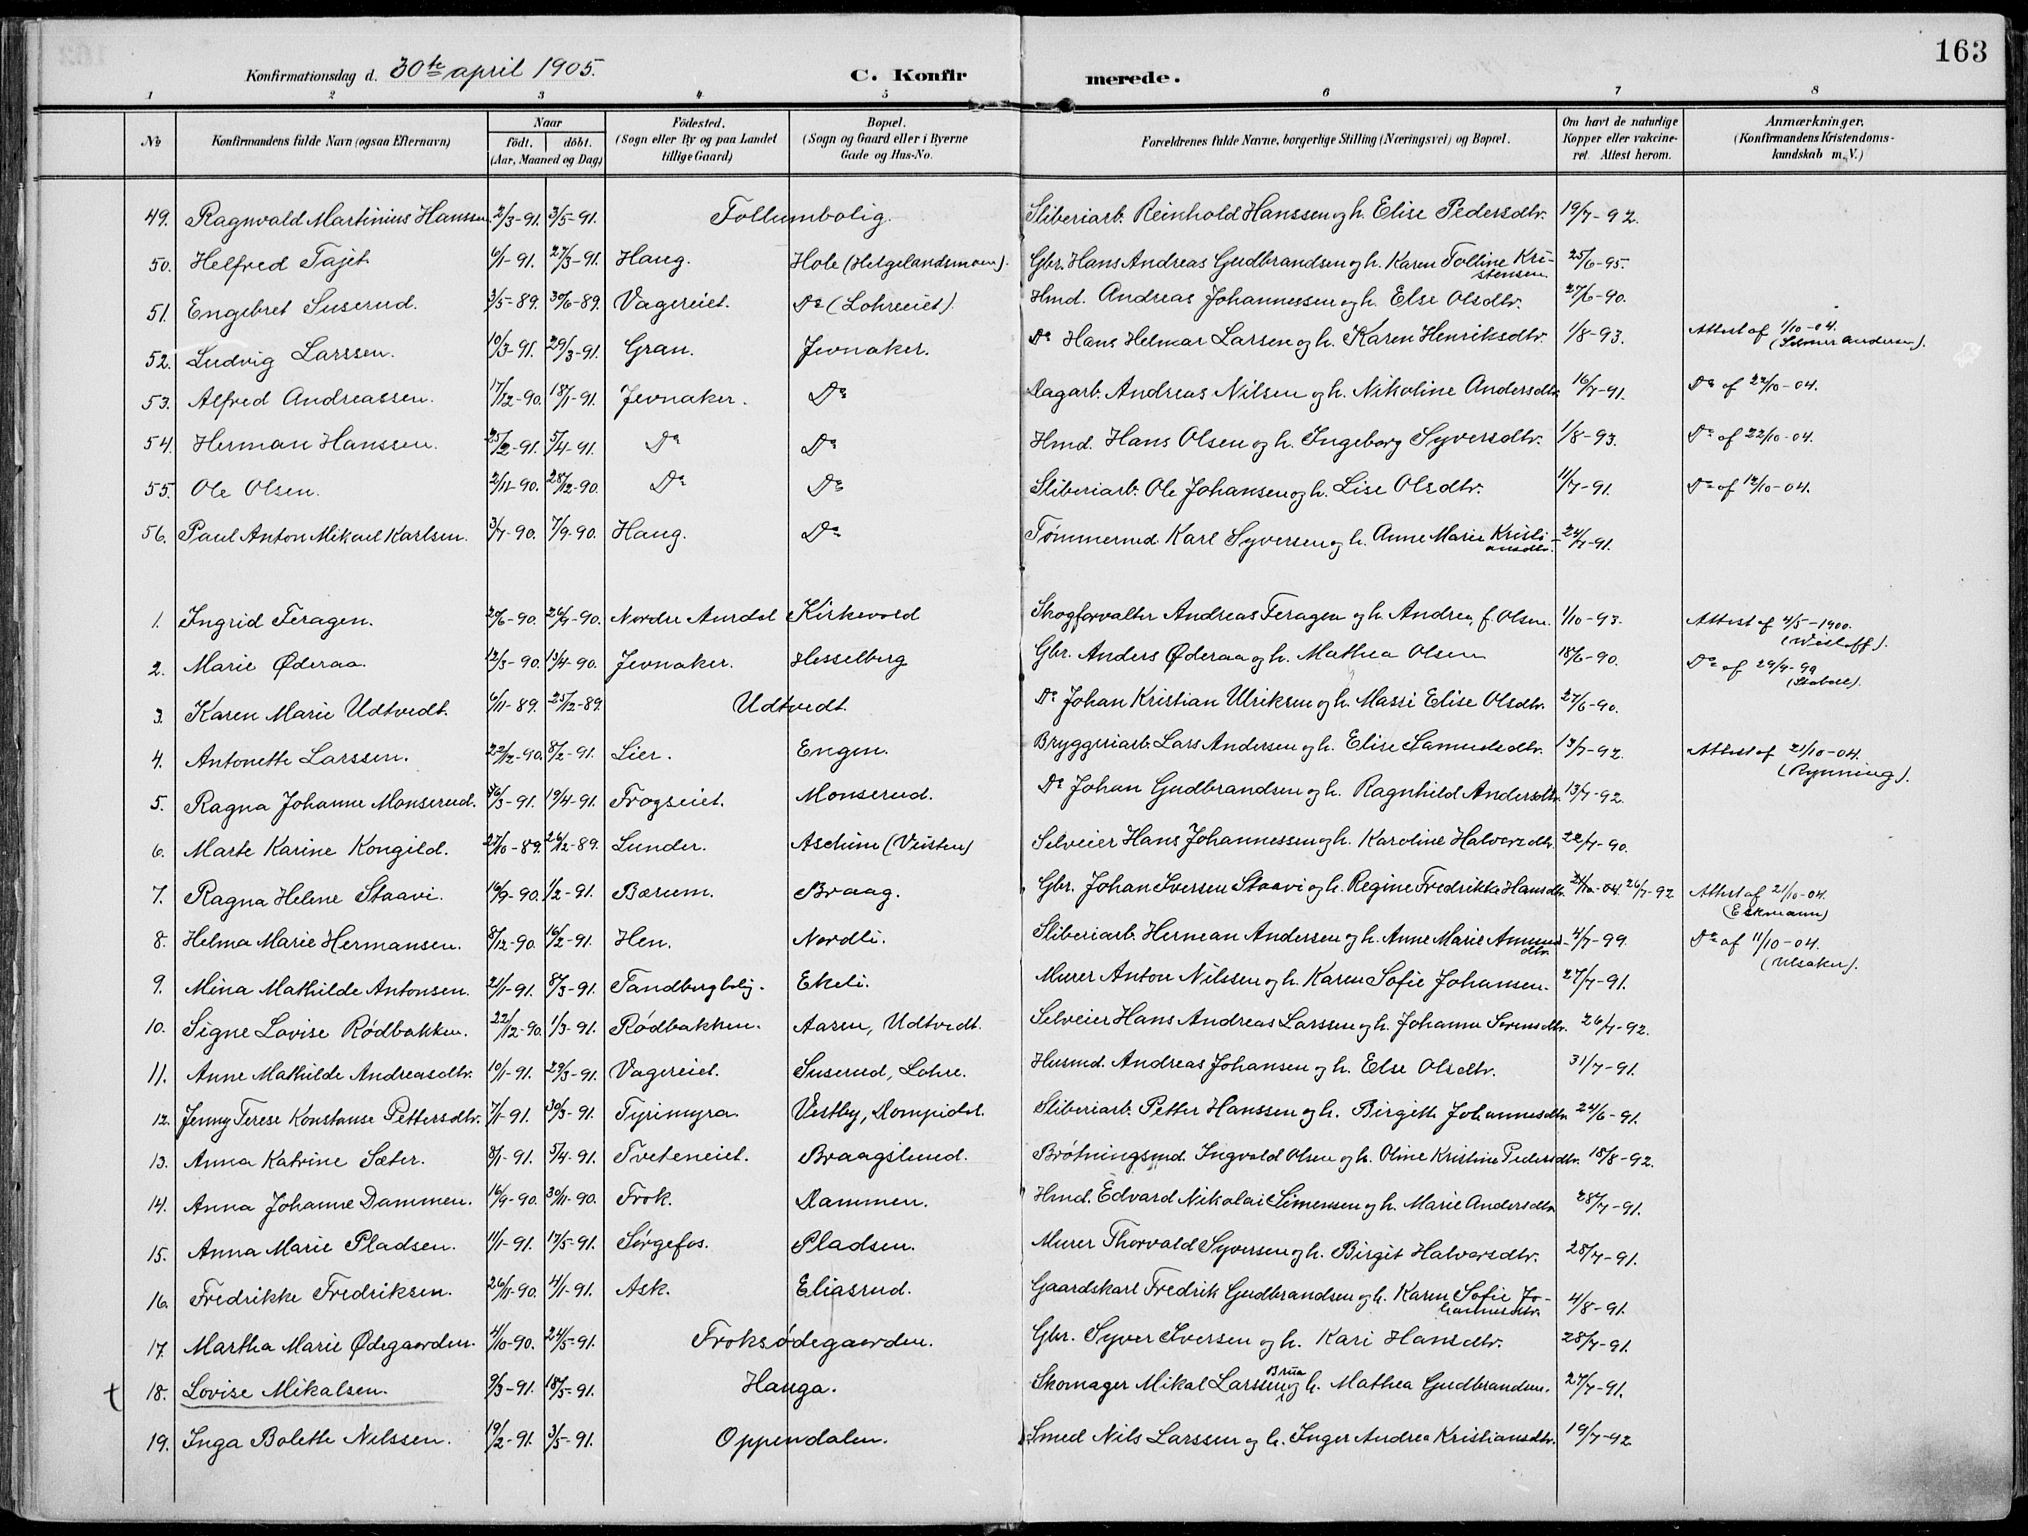 163
Konfirmationsdag d. 30te april 1905.
C. Konfirmerede.
1 2 3 4 5 6 7 8
No Konfirmandens fulde Navn (ogsaa Efternavn) Naar födt. döbt. (Aar, Maaned og Dag) Födested. (Sogn eller By og paa Landet tillige Gaard) Bopæl. (Sogn og Gaard eller i Byerne Gade og Hus-No. Forældrenes fulde Navne, borgerlige Stilling (Næringsvei) og Bopæl. Om havt de naturlige Kopper eller vakcineret. Attest herom. Anmærkninger. (Konfirmandens Kristendomskundskab m. V.)
49. Ragnvald Martinius Hanssen 2/3-91. 3/5-91. Follumbolig. Sliberiarb. Reinhold Hanssen og h. Elise Pedersdtr. 19/7-92.
50. Helfred Tajet 6/1-91. 27/3-91. Haug. Hole (Helgelandsmoen). Gbr. Hans Andreas Gudbrandsen og h. Karen Tolline Kristensen. 25/6-95.
51. Engebret Suserud. 3/5-89. 30/6-89. Vagereiet. Do (Lohreeiet). Hmd. Andreas Johannessen og h. Else Olsdtr. 27/6-90.
52. Ludvig Larssen. 10/3-91. 29/3-91. Gran. Jevnaker. Do Hans Helmar Larsen og h. Karen Henriksdtr. 1/8-93. Attest af 1/10-04. (Selmer Andersen).
53. Alfred Andreassen. 17/12-90. 18/1-91. Jevnaker. Do Dagarb. Andreas Nilsen og h. Nikoline Andersdtr. 16/7-91. Do af 22/10-04.
54. Herman Hanssen. 25/2-91. 5/4-91. Do Do Hmd. Hans Olsen og h. Ingeborg Syversdtr. 1/8-93. Do af 22/10-04.
55. Ole Olsen. 2/11-90. 28/12-90. Do Do Sliberiarb. Ole Johansen og h. Lise Olsdtr. 11/7-91. Do af 12/10-04.
56. Paul Anton Mikael Karlsen. 3/7-90. 7/9-90. Haug. Do Tømmermd Karl Syversen og h. Anne Marie Kristiansdtr. 24/7-91.
1. Ingrid Feragen. 20/6-90. 26/7-90. Nordre Aurdal Kirkevold Skogforvalter Andreas Feragen og h. Andrea f. Olsen. 1/10-93. Attest af 4/5-1900. (Wisløff).
2. Marie Øderaa. 12/3-90. 13/4-90. Jevnaker. Hesselberg Gbr. Anders Øderaa og h. Mathea Olsen 18/6-90. Do af 29/9-99
3. Karen Marie Udtvedt. 6/11-89. 25/12-89. Udtvedt. Do Johan Kristian Ulriksen og h. Massi Elise Olsdtr. 27/6-90.
4. Antonette Larssen. 22/12-90. 8/2-91. Lier. Engen. Bryggeriarb. Lars Andersen og h. Elise Samuelsdtr. 13/7-92. Attest af 21/10-04. (Rynning).
5. Ragna Johanne Monserud. 16/3-91. 19/4-91. Frogseiet. Monserud. Do Johan Gudbrandsen og h. Ragnhild Andersdtr. 13/7-92.
6. Marte Karine Kongild. 27/10-89. 26/12-89. Lunder. Aschim (Veisten) Selveier Hans Johannessen og h. Karoline Halvorsdtr. 22/7-90.
7. Ragna Helene Staavi. 16/9-90. 1/2-91. Bærum. Braag. Gbr. Johan Iversen Staavi og h. Regine Fredrikke Hansdtr. 21/10-04. 26/7-92 Attest af 21/10-04. (Eckmann)
8. Helma Marie Hermansen. 8/12-90. 16/2-91. Hen. Nordli. Sliberiarb. Herman Andersen og h. Anne Marie Amundsdtr. 4/7-99. Do af 11/10-04. (Ulsaker).
9. Mina Mathilde Antonsen. 21/1-91. 8/3-91. Tandbergbolig. Ekeli. Murer Anton Nilssen og h. Karen Sofie Johansen. 27/7-91.
10. Signe Lovise Rødbakken. 22/12-90. 1/3-91. Rødbakken. Aasen, Udtvedt. Selveier Hans Andreas Larssen og h. Johanne Sørensdtr. 26/7-92.
11. Anne Mathilde Andreasdtr. 10/1-91. 29/3-91. Vagereiet. Suserud, Lohre. Husmd. Andreas Johansen og h. Else Olsdtr. 31/7-91.
12. Jenny Terese Konstanse Pettersdtr. 7/1-91. 30/3-91. Tyrimyra. Vestby, Dompidal. Sliberiarb. Petter Hanssen og h. Birgitte Johannesdtr. 24/6-91.
13. Anna Katrine Sæter. 8/1-91. 5/4-91. Tveteneiet. Braagslund. Brøtningsmd. Ingvald Olsen og h. Oline Kristine Pedersdtr. 18/8-92.
14. Anna Johanne Dammen. 16/9-90. 30/11-90. Frok. Dammen. Hmd. Edvard Nikolai Simensen og h. Marie Andersdtr. 28/7-91.
15. Anna Marie Pladsen. 11/1-91. 17/5-91. Sørgefos. Pladsen. Murer Thorvald Syversen og h. Birgit Halvorsdtr. 28/7-91.
16. Fredrikke Fredriksen. 26/11-90. 4/1-91. Ask. Eliasrud. Gaardskarl Fredrik Gudbrandsen og h. Karen Sofie Johannesdtr. 4/8-91.
17. Martha Marie Ødegaarden. 4/10-90. 24/5-91. Froksødegaarden. Gbr. Syver Iversen og h. Kari Hansdtr. 28/7-91.
† 18. Lovise Mikalsen. 9/3-91. 18/5-91. Hauga. Skomager Mikal Larssen Brua og h. Mathea Gudbrandsen. 27/7-91.
19. Inga Bolette Nilssen. 19/2-91. 3/5-91. Oppendalen. Smed Nils Larssen og h. Inger Andrea Kristiansdtr. 19/7-92